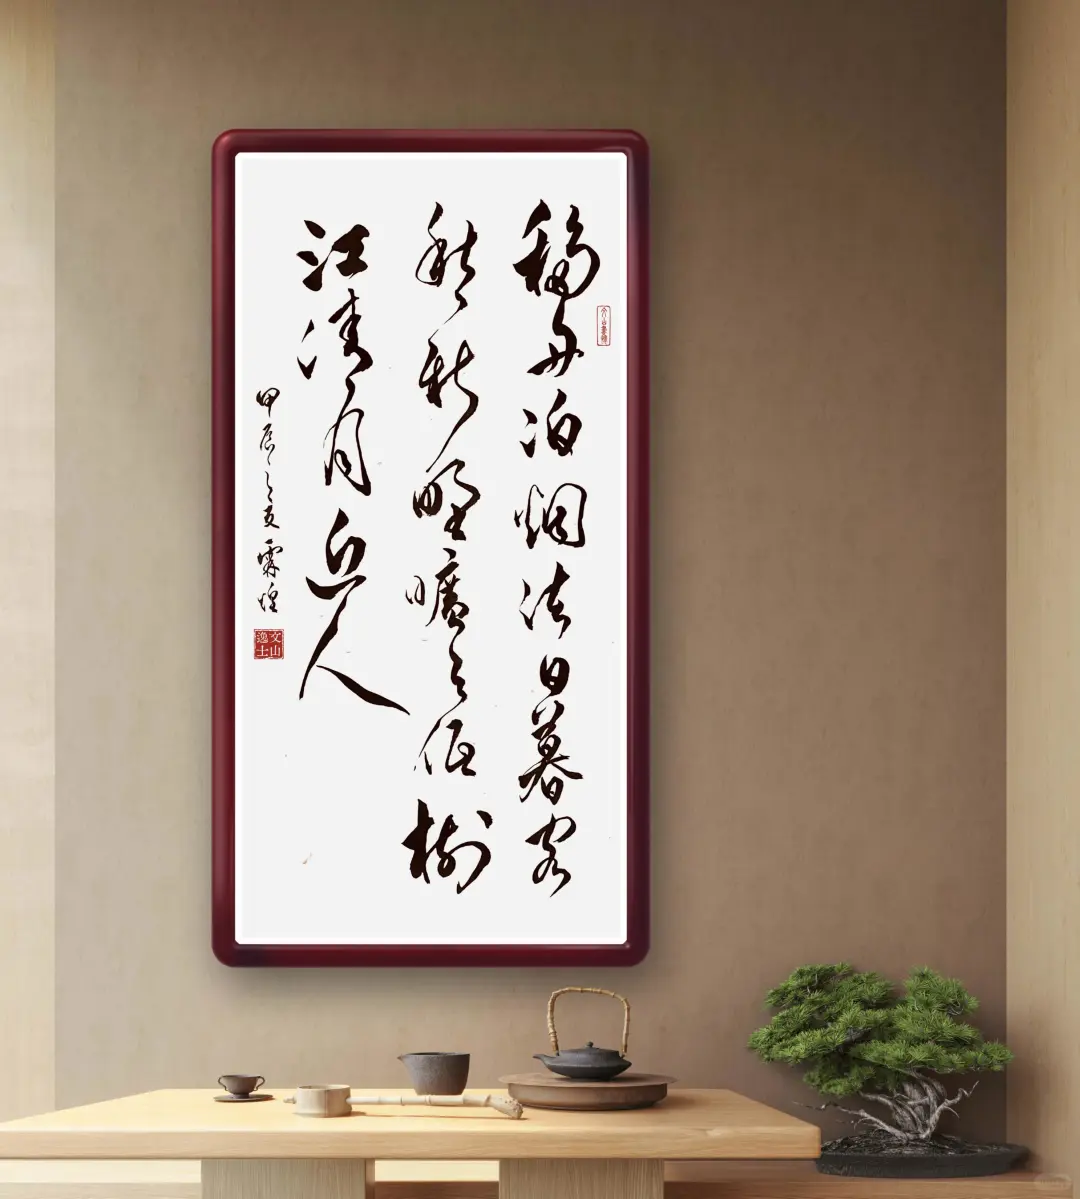 移舟泊烟渚日暮客
愁新野曠天低樹
江清月近人
甲辰之夏 霖煌
文山逸士